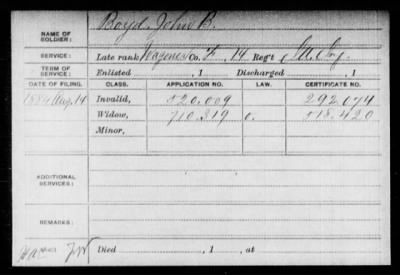 NAME OF SOLDIER: Boyd John B.
SERVICE: Late rank Wagoner Co. F, 14 Reg't Ill. Cav.
TERM OF SERVICE: Enlisted , 1 Discharged , 1
DATE OF FILING. CLASS. APPLICATION NO. LAW. CERTIFICATE NO.
1884 Aug. 14 Invalid, 520.009 292.074
Widow, 710.319 518.420
Minor,
ADDITIONAL SERVICES:
REMARKS:
Died , 1 , at